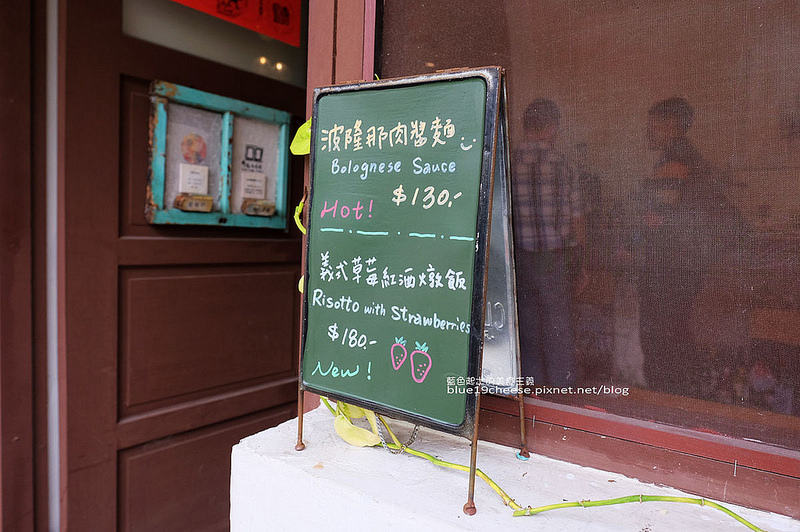 波隆那肉醬麵
Bolognese Sauce
$130.-
Hot!
義式草莓紅酒燉飯
Risotto with Strawberries
$180.-
New!
藍色起士的美食主義
blue19cheese.pixnet.net/blog